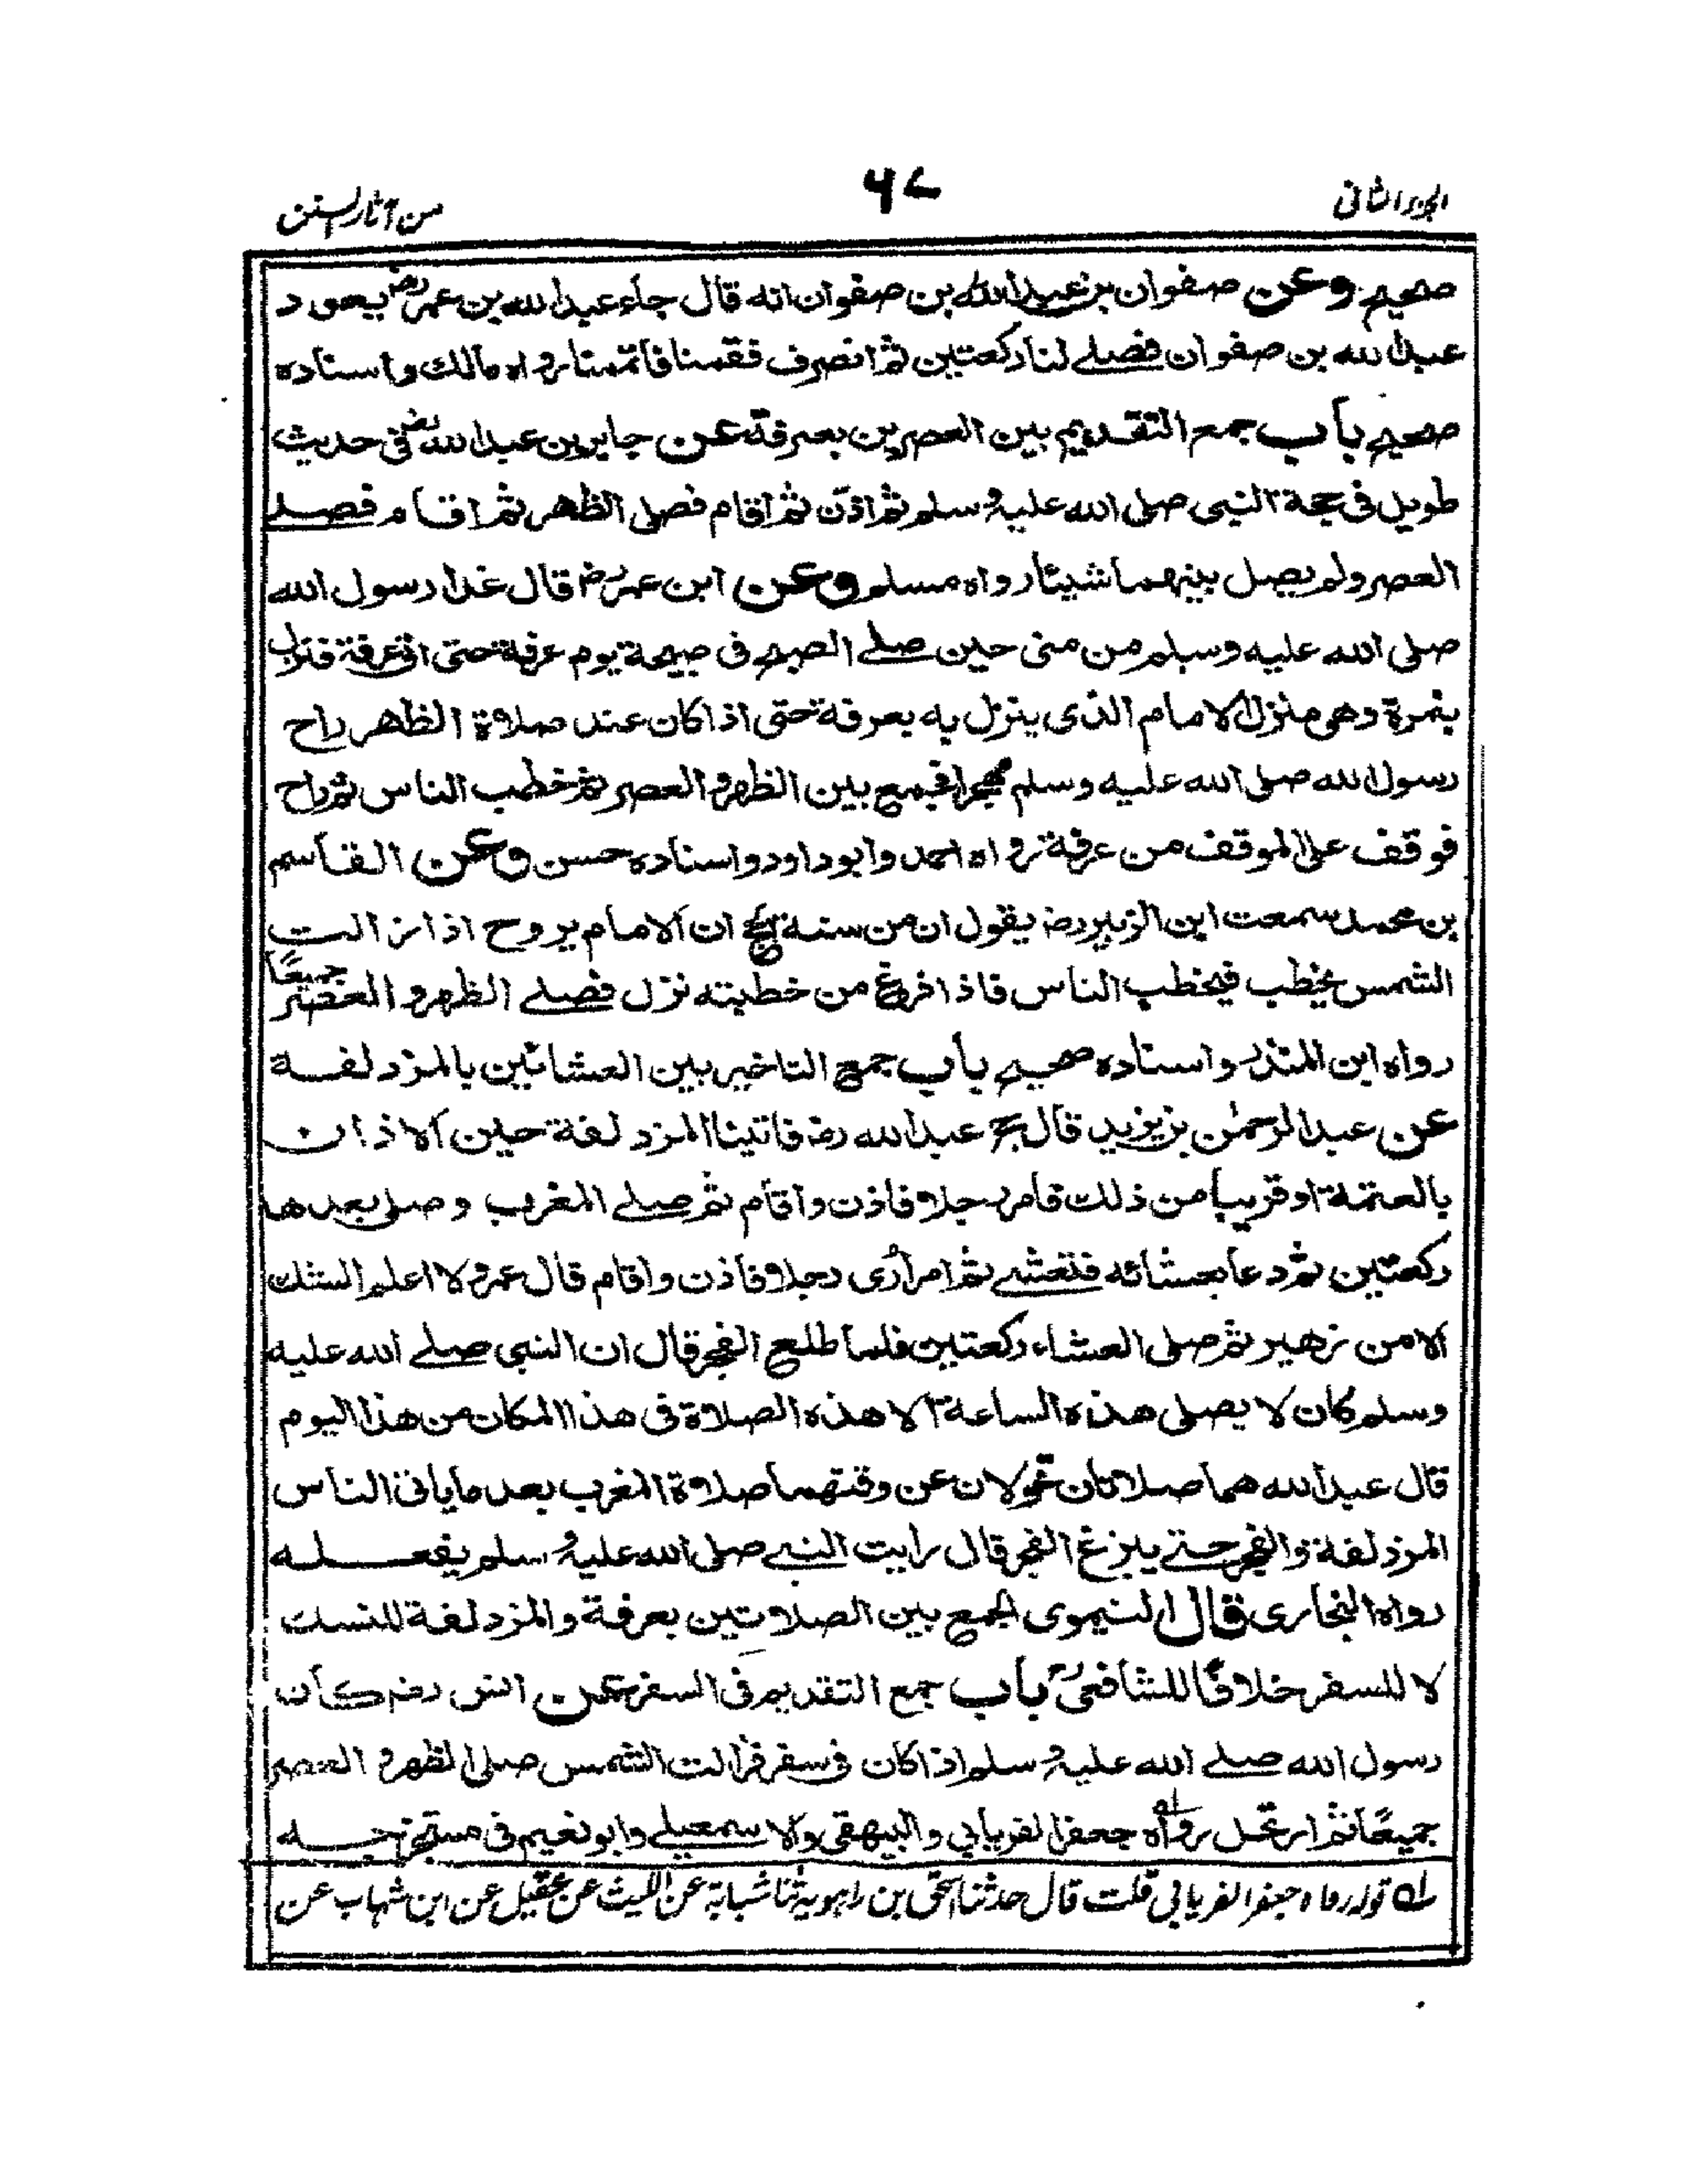 الجزء الثانی
۶۷
من آثار السنن
صحیح وعن صفوان بن عبد الله بن صفوان انه قال جاء عبد الله بن عمر رض یعود
عبد الله بن صفوان فصلے لنا رکعتین ثم انصرف فقمنا فاتممنا رواه مالك واسناده
صحیح باب جمع التقدیم بین العصرین بعرفة عن جابر بن عبد الله رض فی حدیث
طویل فی حجة النبی صلی الله علیه وسلم ثم اذن ثم اقام فصلی الظهر ثم اقام فصلے
العصر ولم یصل بینهما شیئا رواه مسلم وعن ابن عمر رض قال غدا رسول الله
صلی الله علیه وسلم من منی حین صلے الصبح فی صبیحة یوم عرفة حتی اتی عرفة فنزل
بنمرة وهی منزل الامام الذی ینزل به بعرفة حتی اذا کان عند صلاة الظهر راح
رسول الله صلی الله علیه وسلم مهجرا فجمع بین الظهر والعصر ثم خطب الناس ثم راح
فوقف علی الموقف من عرفة رواه احمد وابو داود واسناده حسن وعن القاسم
بن محمد سمعت ابن الزبیر رض یقول ان من سنة الحج ان الامام یروح اذا زالت
الشمس یخطب فیخطب الناس فاذا فرغ من خطبته نزل فصلے الظهر والعصر جمیعًا
رواه ابن المنذر واسناده صحیح باب جمع التاخیر بین العشائین بالمزدلفة
عن عبد الرحمٰن بن یزید قال حج عبد الله رض فاتینا المزدلفة حین الاذان
بالعتمة او قریبا من ذلك فامر رجلا فاذن واقام ثم صلے المغرب وصلی بعدها
رکعتین ثم دعا بعشائه فتعشے ثم امر اُری رجلا فاذن واقام قال عمرو لا اعلم الشك
الا من زهیر ثم صلی العشاء رکعتین فلما طلع الفجر قال ان النبی صلے الله علیه
وسلم کان لا یصلی هذه الساعة الا هذه الصلاة فی هذا المکان من هذا الیوم
قال عبد الله هما صلاتان تحولان عن وقتهما صلاة المغرب بعد ما یاتی الناس
المزدلفة والفجر حتے یبزغ الفجر قال رایت النبے صلی الله علیه وسلم یفعله
رواه البخاری قال النیموی الجمع بین الصلاتین بعرفة والمزدلفة للنسك
لا للسفر خلافًا للشافعی رح باب جمع التقدیم فی السفر عن انس رض کان
رسول الله صلے الله علیه وسلم اذا کان فی سفر فزالت الشمس صلی الظهر والعصر
جمیعًا ثم ارتحل رواه له جعفر الفریابی والبیهقی والاسمعیلے وابو نعیم فی مستخرجه
له قوله رواه جعفر الفریابی قلت قال حدثنا اسحٰق بن راهویة ثنا شبابة عن اللیث عن عقیل عن ابن شهاب عن